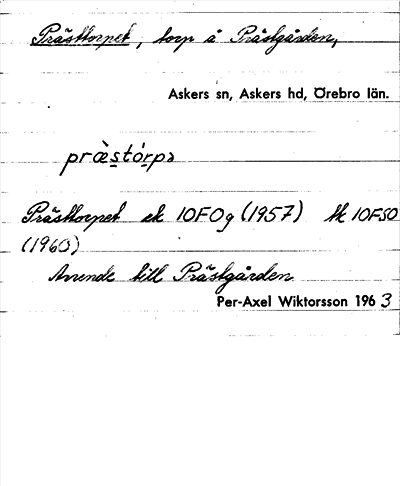 Prästtorpet, torp å Prästgården,
Askers sn, Askers hd, Örebro län.
præ̀stórpə
Prästtorpet ek 10F0g (1957) tk 10FSO
(1960)
Arrende till Prästgården
Per-Axel Wiktorsson 1963